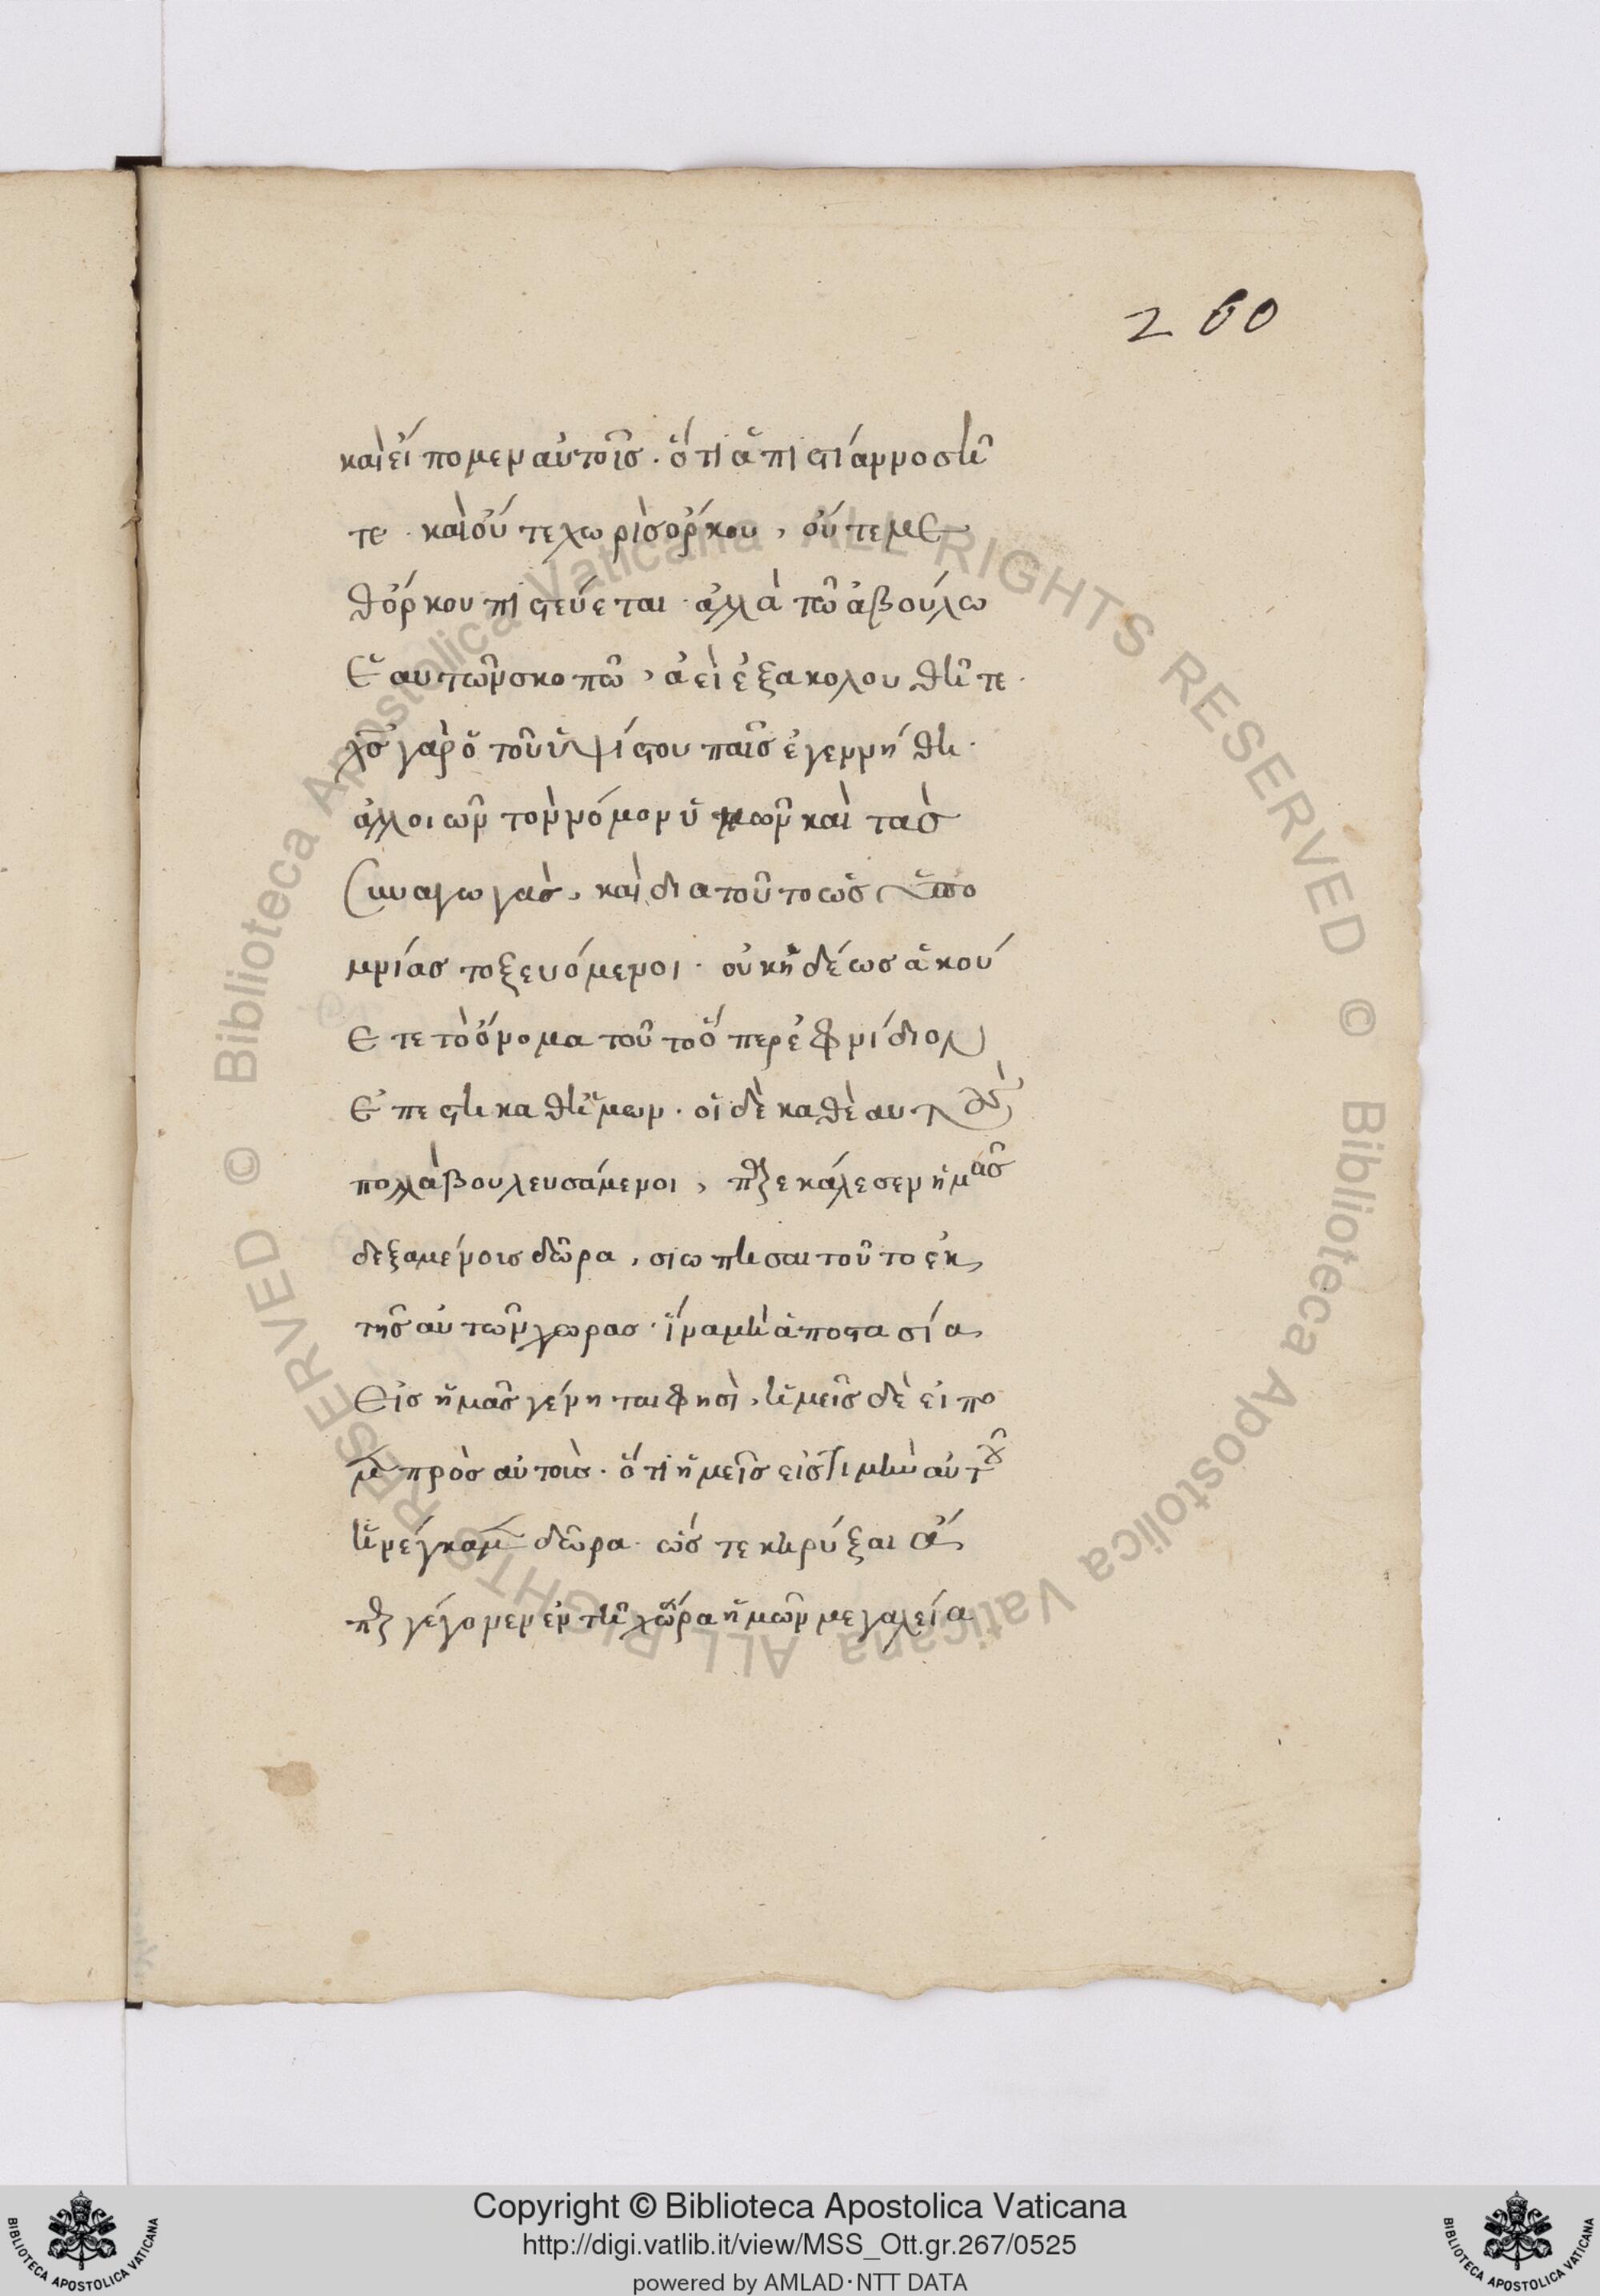 260
καὶ εἴπομεν αὐτοῖς· ὅτι ἄπιστοι ἄνομος ἦ
τε· καὶ οὔτε χωρὶς ὅρκου, οὔτε με
θόρκου πιστεύεται· ἀλλὰ τῶ ἀβούλω
ἑαυτῶν σκοπῶ, ἀεὶ ἐξακολουθῆτε·
χς γὰρ ὁ τοῦ ὑψίστου παῖς ἐγεννήθη·
ἀλλοιῶν τὸν νόμον ὑμῶν καὶ τὰς
συναγωγὰς, καὶ διατοῦτο ὡς ὑπὸ
μνίας τοξευόμενοι· οὐκ ἡδέως ἀκού
ετε τὸ ὄνομα τοῦτο ὅπερ ἐφνίδιον
ἐπέστη καθ ἡμων· οἱ δὲ καθ ἑαυτοὺς
πολλὰ βουλευσάμενοι, παρεκάλεσεν ἡμᾶς
δεξαμένοις δῶρα, σιωπησαι τοῦτο ἐκ
τῆς αὐτῶν χωρας· ἵνα μὴ ἀποστασία
εἰς ἡμᾶς γένηται φησὶ, ἡμεῖς δὲ εἰπο
μὲν πρὸς αὐτοὺς· ὅτι ἡμεῖς εἰς τιμὴν αὐτοῦ
ἠνέγκαμεν δῶρα· ὥστε κηρύξαι ἅ
περ γέγονεν ἐν τῆ χώρα ἡμῶν μεγαλεία
Copyright © Biblioteca Apostolica Vaticana
http://digi.vatlib.it/view/MSS_Ott.gr.267/0525
powered by AMLAD·NTT DATA
BIBLIOTECA APOSTOLICA VATICANA
BIBLIOTECA APOSTOLICA VATICANA
© Biblioteca Apostolica Vaticana ALL RIGHTS RESERVED
© Biblioteca Apostolica Vaticana ALL RIGHTS RESERVED